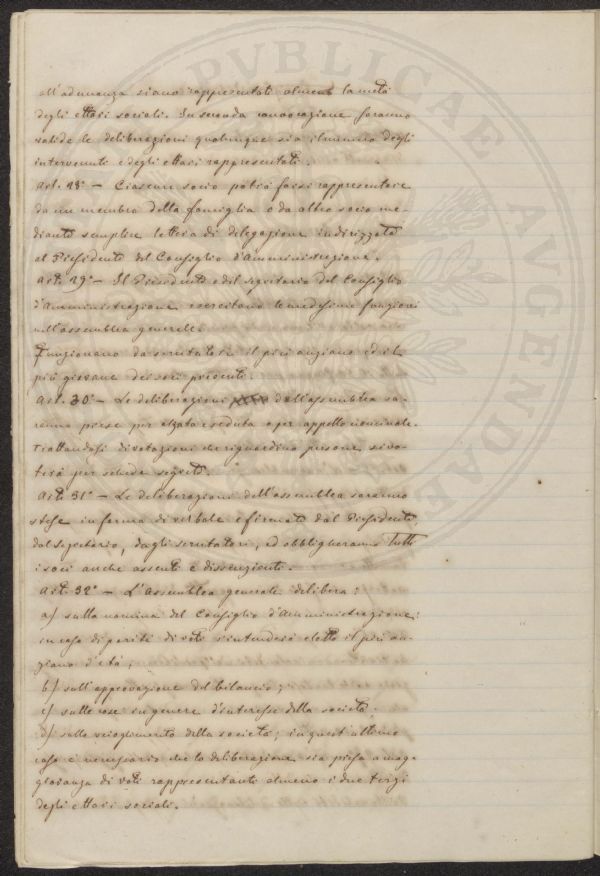 all'adunanza siano rappresentati almeno la metà
degli ettari sociali. In seconda convocazione saranno
valide le deliberazioni qualunque sia il numero degli
intervenuti e degli ettari rappresentati.
Art. 28° - Ciascun socio potrà farsi rappresentare
da un membro della famiglia o da altro socio me-
diante semplice lettera di delegazione indirizzata
al Presidente del Consiglio d'Amministrazione.
Art. 29° - Il Presidente ed il segretario del Consiglio
d'Amministrazione esercitano le medesime funzioni
nell'assemblea generale.
Funzionano da scrutatori il più anziano ed il
più giovane dei soci presenti.
Art. 30° - Le deliberazioni dell'assemblea sa-
ranno prese per alzata e seduta o per appello nominale.
Trattandosi di votazioni che riguardino persone, si vo-
terà per schede segrete.
Art. 31° - Le deliberazioni dell'assemblea saranno
stese in forma di verbale e firmate dal Presidente,
dal segretario, dagli scrutatori, ed obbligheranno tutti
i soci anche assenti e dissenzienti.
Art. 32° - L'Assemblea generale delibera:
a) sulla nomina del Consiglio d'Amministrazione;
in caso di parità di voti s'intenderà eletto il più an-
ziano d'età;
b) sull'approvazione del bilancio;
c) sulle cose in genere d'interesse della società.
d) sullo scioglimento della società; in quest'ultimo
caso è necessario che la deliberazione sia presa a mag-
gioranza di voti rappresentanti almeno i due terzi
degli ettari sociali.
PVBLICAE AVGENDAE